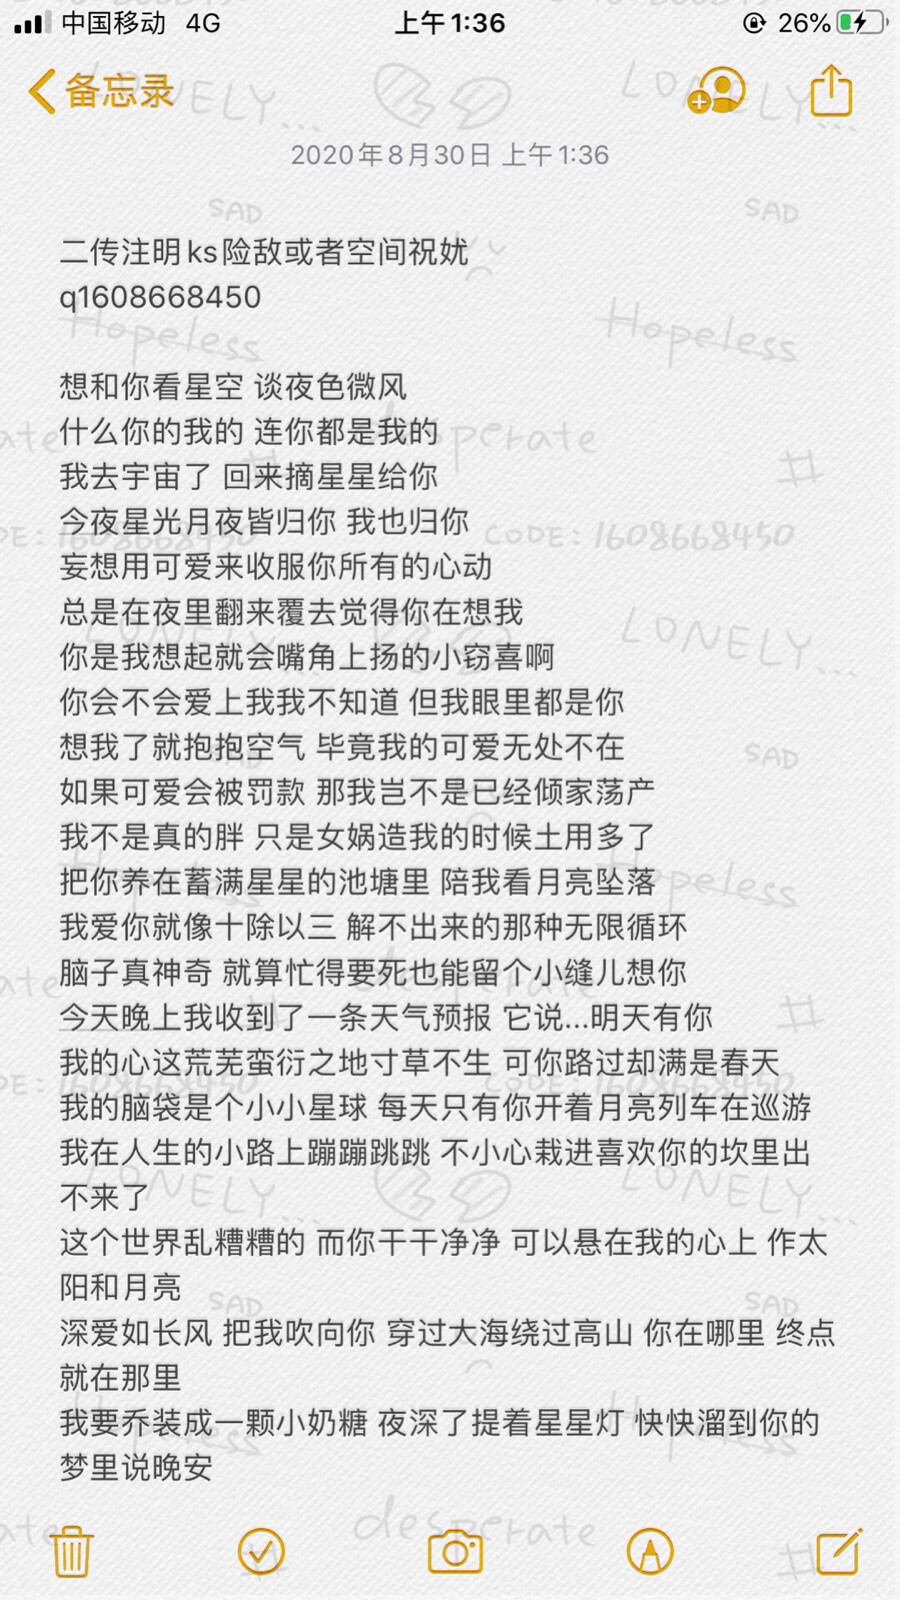 中国移动 4G 上午1:36 26%
备忘录
2020年8月30日 上午1:36
二传注明ks险敌或者空间祝妩
q1608668450
想和你看星空 谈夜色微风
什么你的我的 连你都是我的
我去宇宙了 回来摘星星给你
今夜星光月夜皆归你 我也归你
妄想用可爱来收服你所有的心动
总是在夜里翻来覆去觉得你在想我
你是我想起就会嘴角上扬的小窃喜啊
你会不会爱上我我不知道 但我眼里都是你
想我了就抱抱空气 毕竟我的可爱无处不在
如果可爱会被罚款 那我岂不是已经倾家荡产
我不是真的胖 只是女娲造我的时候土用多了
把你养在蓄满星星的池塘里 陪我看月亮坠落
我爱你就像十除以三 解不出来的那种无限循环
脑子真神奇 就算忙得要死也能留个小缝儿想你
今天晚上我收到了一条天气预报 它说...明天有你
我的心这荒芜蛮衍之地寸草不生 可你路过却满是春天
我的脑袋是个小小星球 每天只有你开着月亮列车在巡游
我在人生的小路上蹦蹦跳跳 不小心栽进喜欢你的坎里出
不来了
这个世界乱糟糟的 而你干干净净 可以悬在我的心上 作太
阳和月亮
深爱如长风 把我吹向你 穿过大海绕过高山 你在哪里 终点
就在那里
我要乔装成一颗小奶糖 夜深了提着星星灯 快快溜到你的
梦里说晚安
LONELY...
SAD
Hopeless
desperate
#
CODE: 1608668450